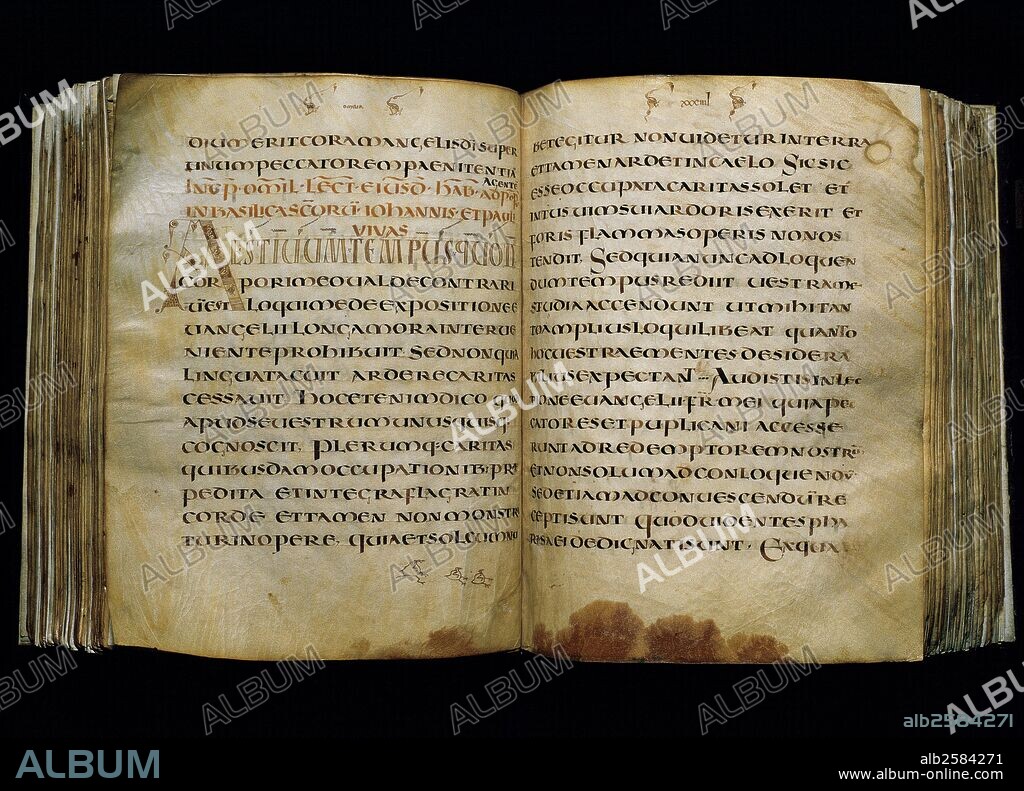 xxxiiii
DIUM ERIT CORAM ANGELIS DI SUPER
UNUM PECCATOREM PAENITENTIĀ
AGENTE
IN BASILICA SCŌRŪ · IOHANNIS · ET PAULI
VIVAS
AESTIUUM TEMPUS QUOD
CORPORI MEO UALDE CONTRARI
ŪEST LOQUI ME DE EXPOSITIONE E
UANGELII LONGA MORA INTERUE
NIENTE PROHIBUIT. SED NON QUIA
LINGUA TACUIT ARDERE CARITAS
CESSAUIT. HOC ETENIM DICO QUO
APUD SE UESTRUM UNUSQUISQ
COGNOSCIT. PLERUMQ· CARITAS
QUIBUSDAM OCCUPATIONIB· PRE
PEDITA ET INTEGRA FLAGRAT IN
CORDE ET TAMEN NON MONSTR
TUR IN OPERE; QUIA ET SOL CUM NU
BE TEGITUR NON UIDETUR IN TERRA
ET TAMEN ARDET IN CAELO SIC SIC
ESSE OCCUPATA CARITAS SOLET ET
INTUS UIM SUI ARDORIS EXERIT ET
FORIS FLAMMAS OPERIS NON OS
TENDIT. SED QUIA NUNC AD LOQUEN
DUM TEMPUS REDIIT UESTRA ME
STUDIA ACCENDUNT UT MIHI TAN
TO AMPLIUS LOQUI LIBEAT QUANTO
HOC UESTRAE MENTES DESIDERA
BILIUS EXPECTANT AUDISTIS IN LEC
TIONE EUANGELII FR̄ MEI QUIA PEC
CATORES ET PUBLICANI ACCESSE
RUNT AD REDEMPTOREM NOSTRŪ
ET NON SOLUM AD CONLOQUENDŪ
SED ETIAM AD CONUESCENDŪ RE
CEPTI SUNT QUOD UIDENTES PHA
RISAEI DEDIGNATI SUNT · EX QUA
ALBUM
alb2584271
ALBUM
alb2584271
www.album-online.com